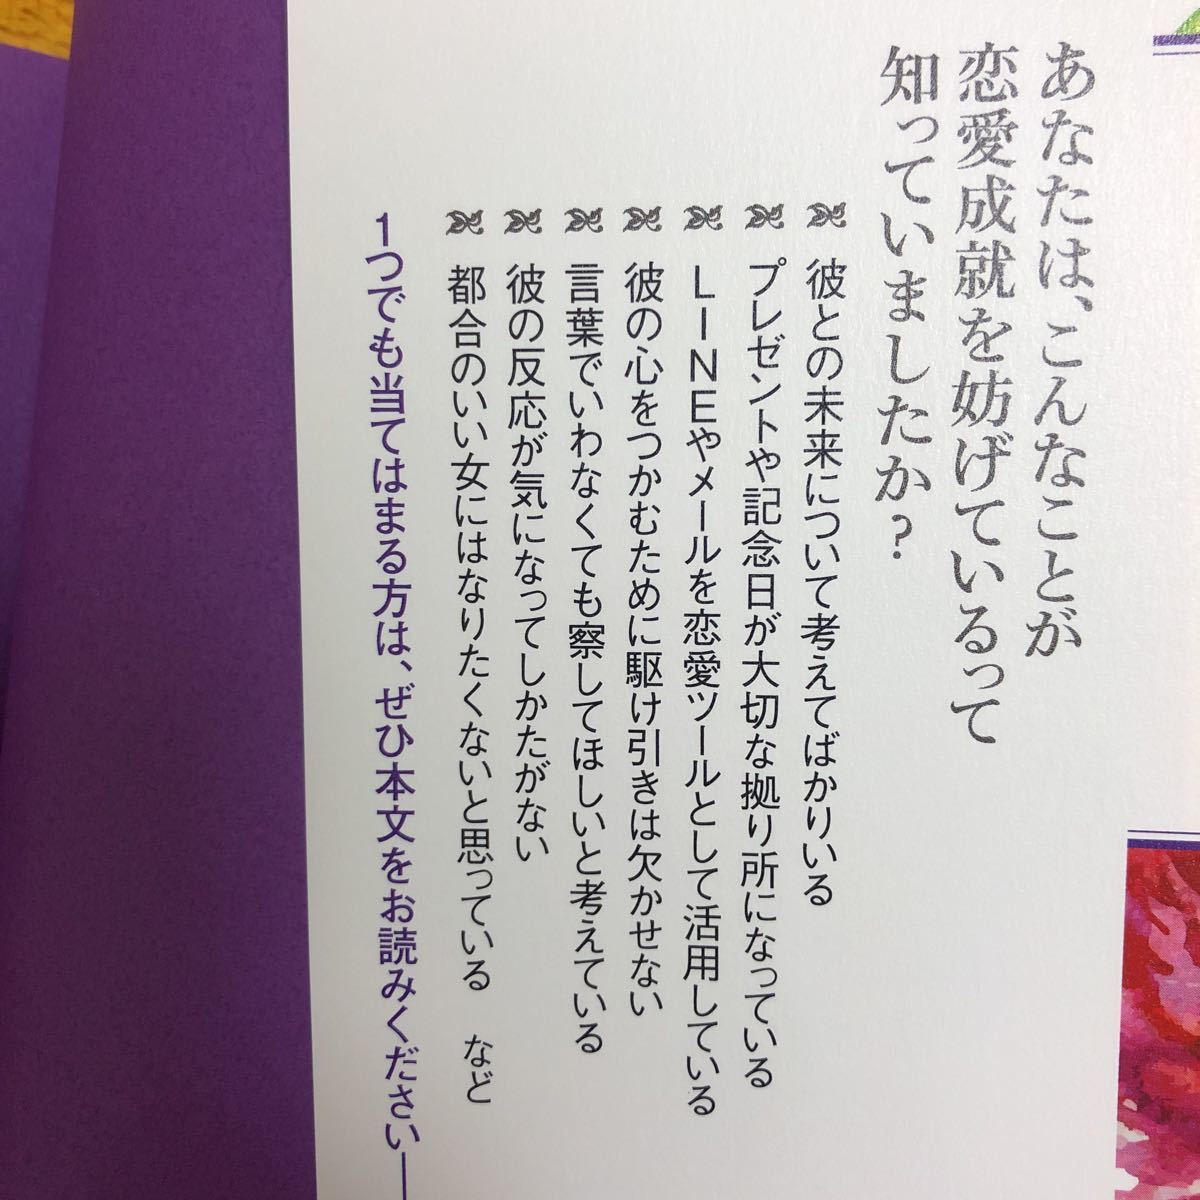 あなたは、こんなことが
恋愛成就を妨げているって
知っていましたか？
彼との未来について考えてばかりいる
プレゼントや記念日が大切な拠り所になっている
LINEやメールを恋愛ツールとして活用している
彼の心をつかむために駆け引きは欠かせない
言葉でいわなくても察してほしいと考えている
彼の反応が気になってしかたがない
都合のいい女にはなりたくないと思っている　など
1つでも当てはまる方は、ぜひ本文をお読みください――